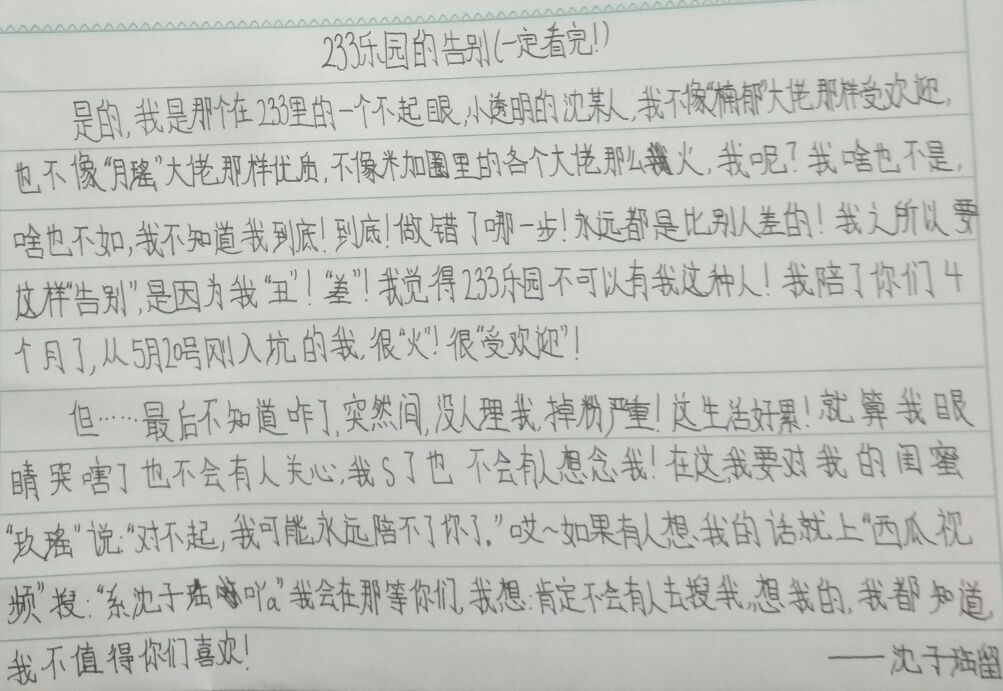 233乐园的告别(一定看完!)
是的,我是那个在233里的一个不起眼,小透明的沈某人,我不像“楠郁”大佬那样受欢迎,
也不像“月瑤”大佬那样优质,不像米加圈里的各个大佬那么火,我呢?我啥也不是,
啥也不如,我不知道我到底!到底!做错了哪一步!永远都是比别人差的!我之所以要
这样“告别”,是因为我“丑”!“差”!我觉得233乐园不可以有我这种人!我陪了你们4
个月了,从5月20号刚入坑的我,很“火”!很“受欢迎”!
但……最后不知道咋了,突然间,没人理我,掉粉严重!这生活好累!就算我眼
睛哭嗐了也不会有人关心,我S了也不会有人想念我!在这,我要对我的闺蜜
“玖瑤”说:“对不起,我可能永远陪不了你了。”哎~如果有人想我的话就上“西瓜视
频”搜:“系沈子吖a”我会在那等你们,我想:肯定不会有人去搜我,想我的,我都知道,
我不值得你们喜欢!
——沈子留